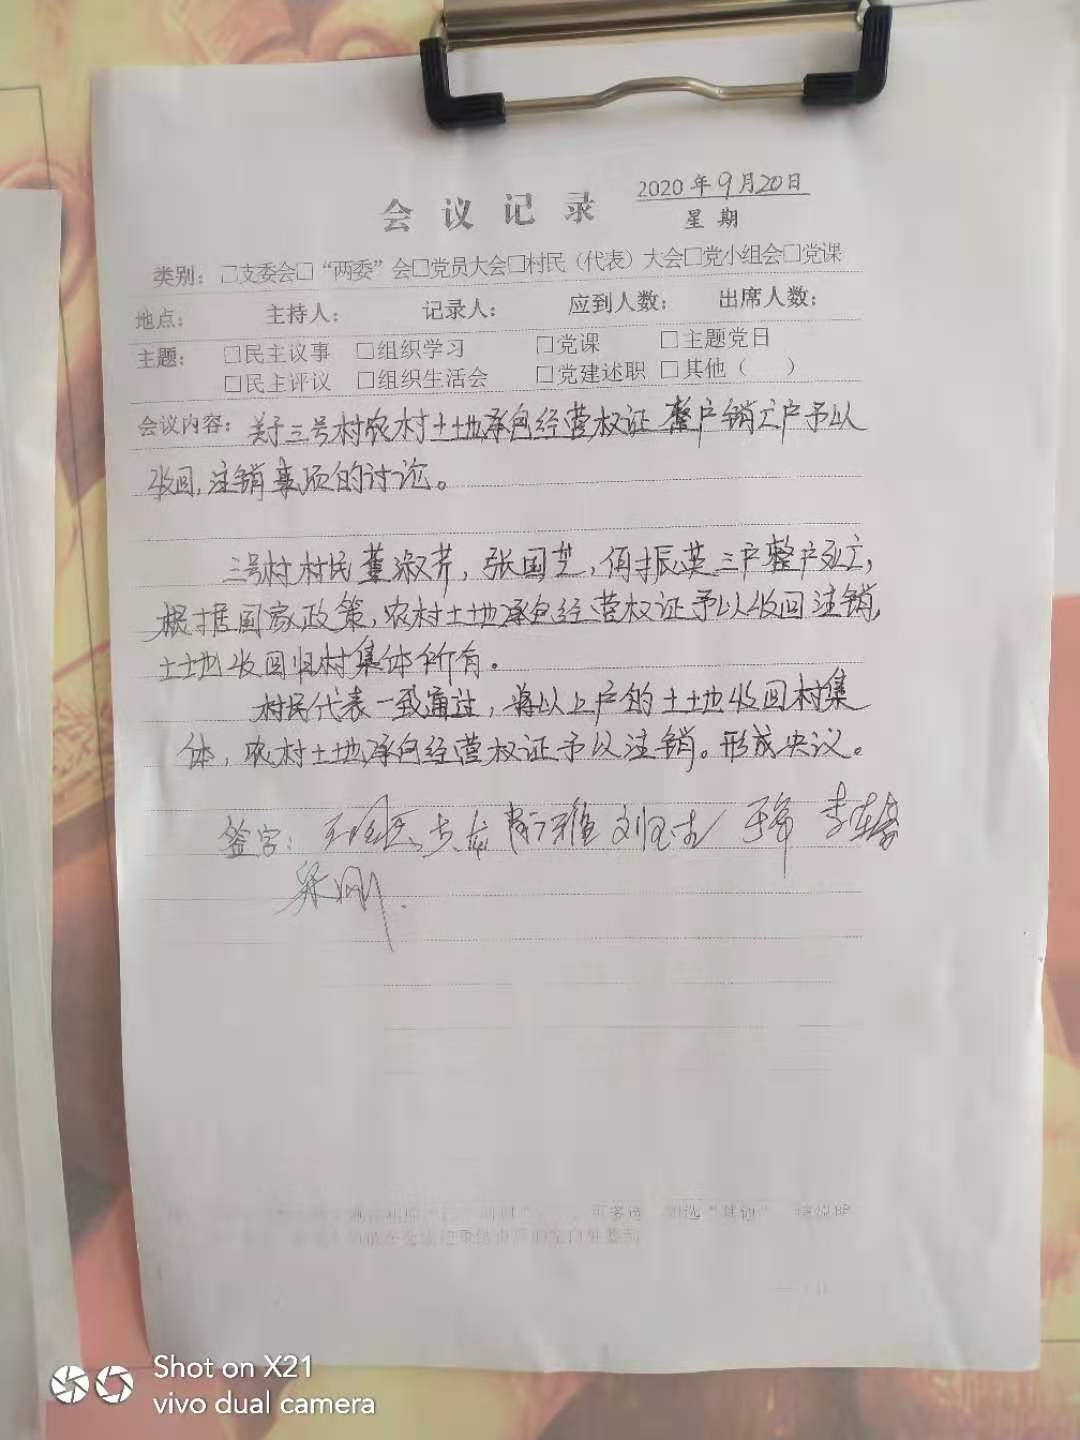 会议记录 2020年9月20日
星期
类别：□支委会□“两委”会□党员大会□村民（代表）大会□党小组会□党课
地点： 主持人： 记录人： 应到人数： 出席人数：
主题： □民主议事 □组织学习 □党课 □主题党日
□民主评议 □组织生活会 □党建述职 □其他（ ）
会议内容：关于三号村农村土地承包经营权证整户销亡户予以
收回，注销事项的讨论。
三号村村民董淑芹，张国芝，佰振英三户整户死亡，
根据国家政策，农村土地承包经营权证予以收回注销，
土地收回归村集体所有。
村民代表一致通过，将以上户的土地收回村集
体，农村土地承包经营权证予以注销。形成决议。
签字：
梁刚
Shot on X21
vivo dual camera